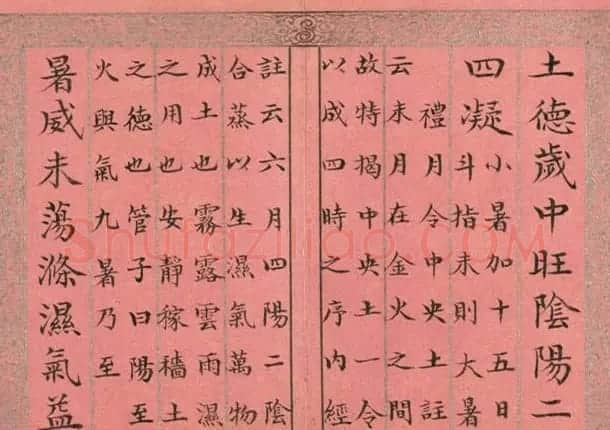 土德歲中旺陰陽二
四凝
小暑加十五日
斗指未則大暑
禮月令中央土註
云未月在金火之間
故特揭中央土一令
以成四時之序內經
註云六月四陽二陰
合蒸以生濕氣萬物
成土也霧露雲雨濕
之用也安靜稼穡土
之德也管子曰陽至
火與氣九暑乃至
暑威未蕩滌濕氣益
Shufaziliao.COM